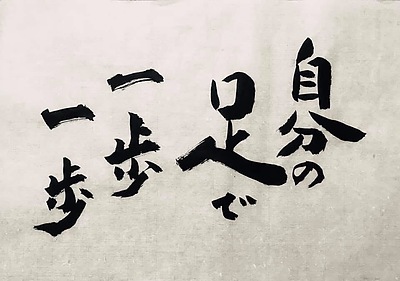 自分の
足で
一歩
一歩